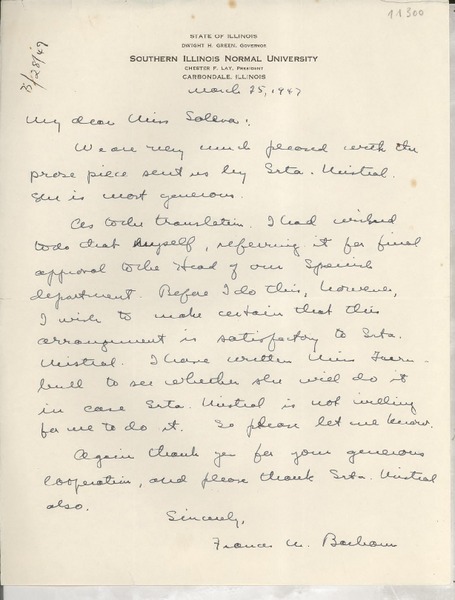 11300
STATE OF ILLINOIS
DWIGHT H. GREEN, GOVERNOR
SOUTHERN ILLINOIS NORMAL UNIVERSITY
CHESTER F. LAY, PRESIDENT
CARBONDALE, ILLINOIS
March 25, 1947
My dear Miss Saleva:
We are very much pleased with the
prose piece sent us by Srta. Mistral.
She is most generous.
As to the translation. I had wished
to do that myself, referring it for final
approval to the Head of our Spanish
department. Before I do this, however,
I wish to make certain that this
arrangement is satisfactory to Srta.
Mistral. I have written Miss Turn-
bull to see whether she will do it
in case Srta. Mistral is not willing
for me to do it. So please let me know.
Again thank you for your generous
cooperation, and please thank Srta. Mistral
also.
Sincerely,
Frances M. Barbour